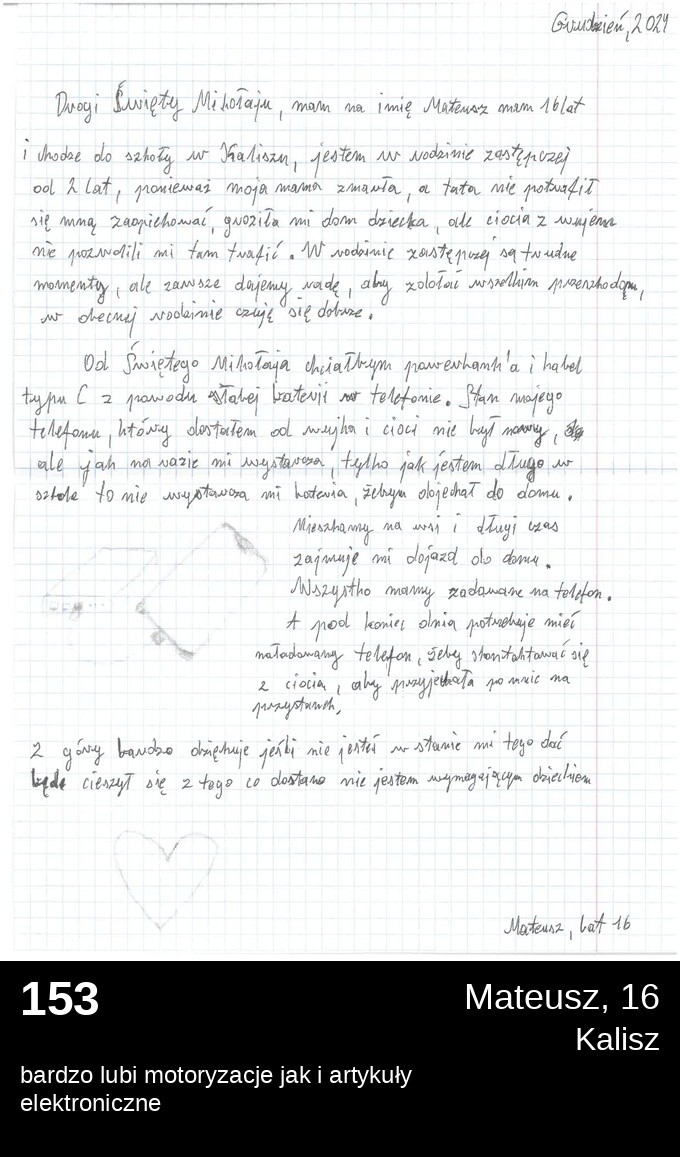 Grudzień, 2024
Drogi Święty Mikołaju, mam na imię Mateusz mam 16 lat
i chodze do szkoły w Kaliszu, jestem w rodzinie zastępczej
od 2 lat, ponieważ moja mama zmarła, a tata nie potrafił
się mną zaopiekować, groziła mi dom dziecka, ale ciocia z wujem
nie pozwolili mi tam trafić. W rodzinie zastępczej są trudne
momenty, ale zawsze dajemy radę, aby zdołać wszelkim przeszkodom,
w obecnej rodzinie czuję się dobrze.
Od Świętego Mikołaja chciałbym powerbank'a i kabel
typu C z powodu słabej baterii w telefonie. Stan mojego
telefonu, który dostałem od wujka i cioci nie był nowy,
ale jak na razie mi wystarcza, tylko jak jestem długo w
szkole to nie wystarcza mi bateria, żebym dojechał do domu.
Mieszkamy na wsi i długi czas
zajmuje mi dojazd do domu.
Wszystko mamy zadawane na telefon.
A pod koniec dnia potrzebuje mieć
naładowany telefon, żeby skontaktować się
z ciocią, aby przyjechała po mnie na
przystanek.
Z góry bardzo dziękuje jeśli nie jesteś w stanie mi tego dać
będe cieszył się z tego co dostane nie jestem wymagającym dzieckiem
Mateusz, lat 16
153
Mateusz, 16
Kalisz
bardzo lubi motoryzacje jak i artykuły
elektroniczne